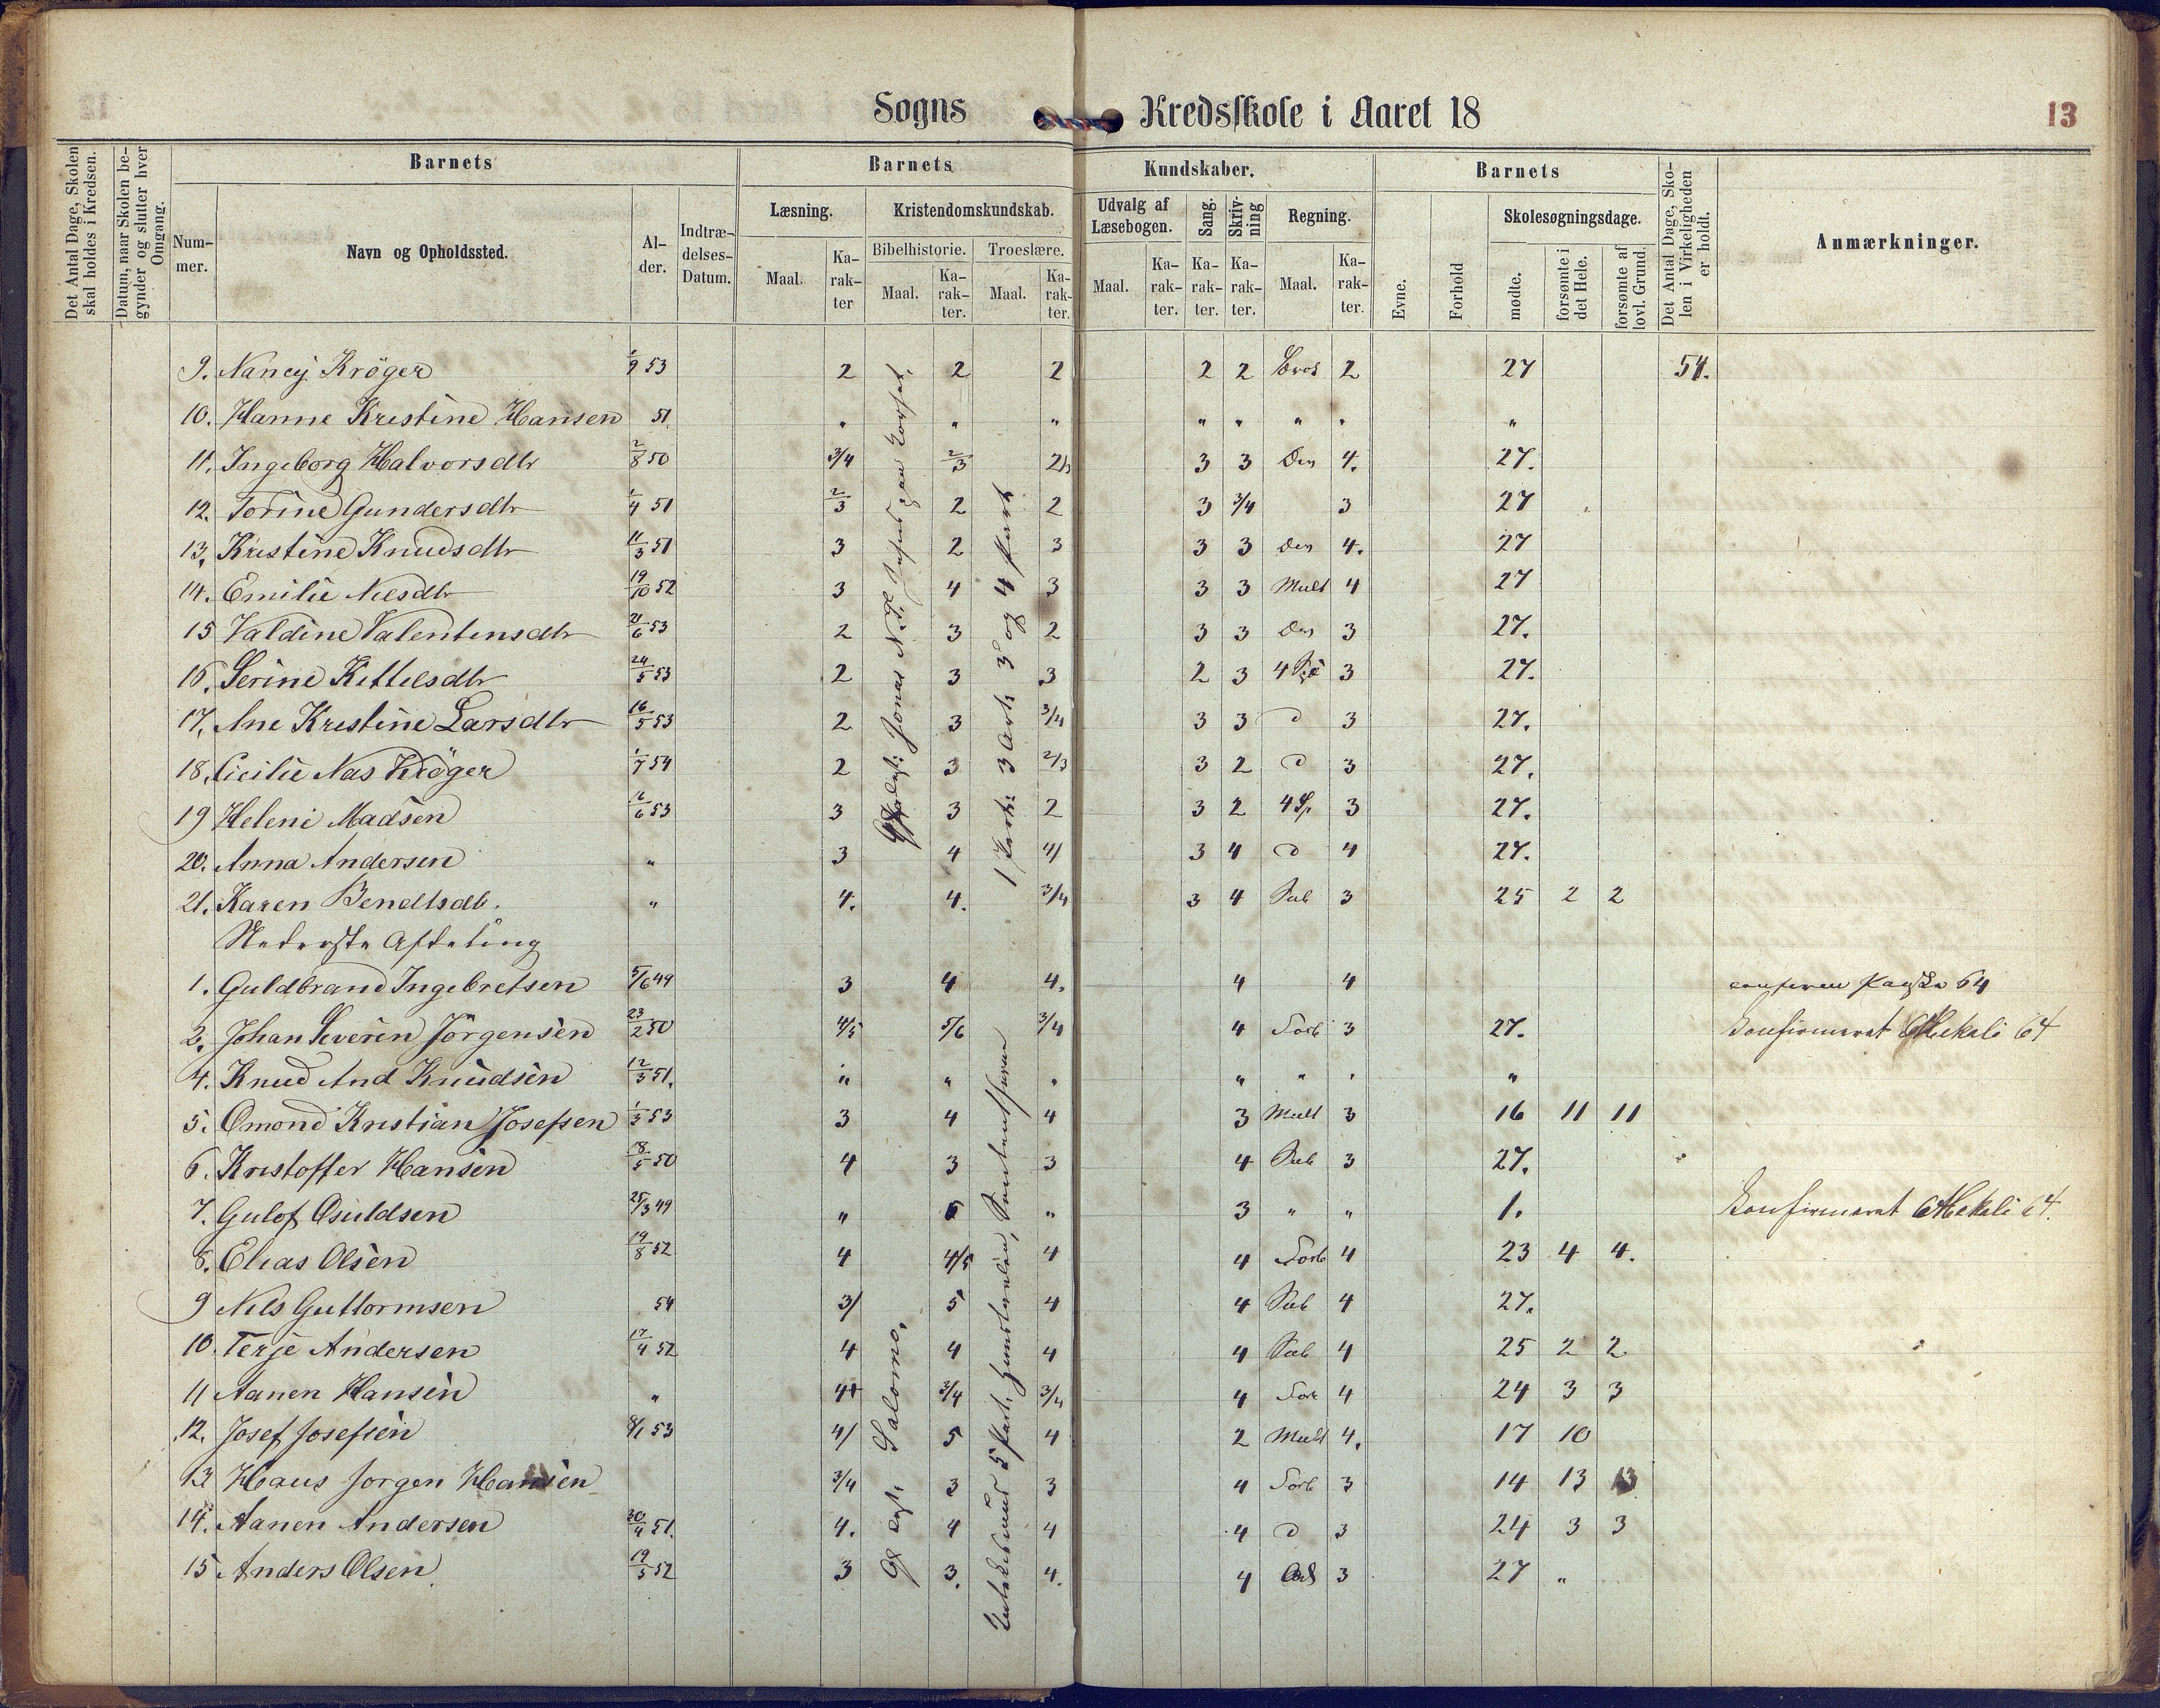 Sogns Kredsskole i Aaret 18
13
Det Antal Dage, Skolen skal holdes i Kredsen.
Datum, naar Skolen begynder og slutter hver Omgang.
Barnets
Nummer.
Navn og Opholdssted.
Alder.
Indtrædelses-Datum.
Barnets Kundskaber.
Læsning.
Maal.
Karakter
Kristendomskundskab.
Bibelhistorie.
Maal.
Karakter.
Troeslære.
Maal.
Karakter.
Udvalg af Læsebogen.
Maal.
Karakter.
Sang.
Karakter.
Skrivning
Karakter.
Regning.
Maal.
Karakter.
Barnets
Evne.
Forhold
Skolesøgningsdage.
mødte.
forsømte i det Hele.
forsømte af lovl. Grund.
Det Antal Dage, Skolen i Virkeligheden er holdt.
Anmærkninger.
9. Nancy Kröger 1/9 53 2 2 2 2 2 Brøk 2 27 54.
10. Hanne Kristine Hansen 51 " " " " " " " "
11. Ingeborg Halvorsdtr 2/8 50 3/4 2/3 2/3 3 3 Den 4. 27.
12. Torine Gundersdtr 1/4 51 2/3 2 2 3 3/4 3 27
13. Kristine Knudsdtr 11/3 51 3 2 3 3 3 Den 4. 27
14. Emilie Nilsdtr 19/10 52 3 4 3 3 3 Mult 4 27
15 Valdine Valentinsdtr 21/6 53 2 3 2 3 3 Den 3 27.
16. Serine Kittelsdtr 24/5 53 2 3 3 2 3 4 3 27.
17. Ane Kristine Larsdtr 16/5 53 2 3 3/4 3 3 D 3 27.
18. Cicilie Nas Kröger 1/7 54 2 3 2/3 3 2 D 3 27.
19 Helene Madsen 16/6 53 3 3 2 3 2 4 Sp. 3 27.
20. Anna Andersen " 3 4 4/ 3 4 D 4 27.
21. Karen Bendtsdtr. " 4. 4. 3/4 3 4 Sub 3 25 2 2
Nederste Afdeling
1. Guldbrand Ingebretsen 5/6 49 3 4 4. 4 4 64
2. Johan Severin Jörgensen 23/2 50 4/5 5/6 3/4 4 Forb 3 27. Konfirmeret Mekali 64
4. Knud And Knudsen 12/3 51. " " " " " " "
5. Omond Kristian Josefsen 1/3 53 3 4 4 3 Mult 3 16 11 11
6. Kristoffer Hansen 18/5 50 4 3 3 4 Sub 3 27.
7. Gulof Osuldsen 25/3 49 " 5 " 3 " " 1. Konfirmeret Mekali 64.
8. Elias Olsen 19/8 52 4 4/5 4 4 Forb 4 23 4 4.
9 Nils Guttormsen 54 3/ 5 4 4 Sub 4 27.
10. Terje Andersen 17/4 52 4 4 4 4 Sub 4 25 2 2
11 Aanen Hansen " 4+ 3/4 3/4 4 Forb 4 24 3 3
12. Josef Josefsen 8/1 53 4/ 5 4 2 Mult 4. 17 10
13 Hans Jorgen Hansen 3/4 3 3 4 Forb 3 14 13 13
14. Aanen Andersen 30/4 51. 4. 4 4 4 D 3 24 3 3
15 Anders Olsen 19/5 52 3 3. 4. 4 Add 3 27 "
Jonas
3 Art: 3 og 4 Part
Salomo.
5 Part: